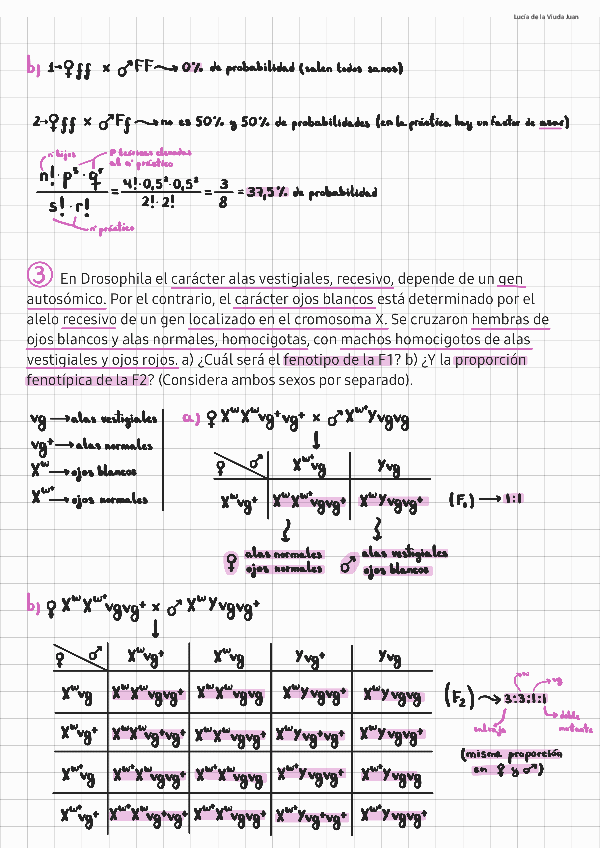 Lucía de la Viuda Juan
b) 1→♀ff x ♂FF → 0% de probabilidad (salen todos sanos)
2→♀ff x ♂Ff → no es 50% y 50% de probabilidades (en la práctica hay un factor de azar)
nº hijos
p teóricas elevadas al nº práctico
n! · pˢ · qʳ / s! · r! = 4! · 0,5² · 0,5² / 2! · 2! = 3/8 = 37,5% de probabilidad
nº práctico
3 En Drosophila el carácter alas vestigiales, recesivo, depende de un gen
autosómico. Por el contrario, el carácter ojos blancos está determinado por el
alelo recesivo de un gen localizado en el cromosoma X. Se cruzaron hembras de
ojos blancos y alas normales, homocigotas, con machos homocigotos de alas
vestigiales y ojos rojos. a) ¿Cuál será el fenotipo de la F1? b) ¿Y la proporción
fenotípica de la F2? (Considera ambos sexos por separado).
vg → alas vestigiales
vg⁺ → alas normales
Xʷ → ojos blancos
Xʷ⁺ → ojos normales
a) ♀ XʷXʷvg⁺vg⁺ x ♂Xʷ⁺Yvgvg
♀ ♂ Xʷ⁺vg Yvg
Xʷvg⁺ XʷXʷ⁺vgvg⁺ XʷYvgvg⁺ (F₁) → 1:1
♀ alas normales ojos normales
♂ alas vestigiales ojos blancos
b) ♀ XʷXʷ⁺vgvg⁺ x ♂ XʷYvgvg⁺
♀ ♂ Xʷvg⁺ Xʷvg Yvg⁺ Yvg
Xʷvg XʷXʷvgvg⁺ XʷXʷvgvg XʷYvgvg⁺ XʷYvgvg
(F₂) → 3:3:1:1
vg
salvaje
doble mutante
(misma proporción en ♀ y ♂)